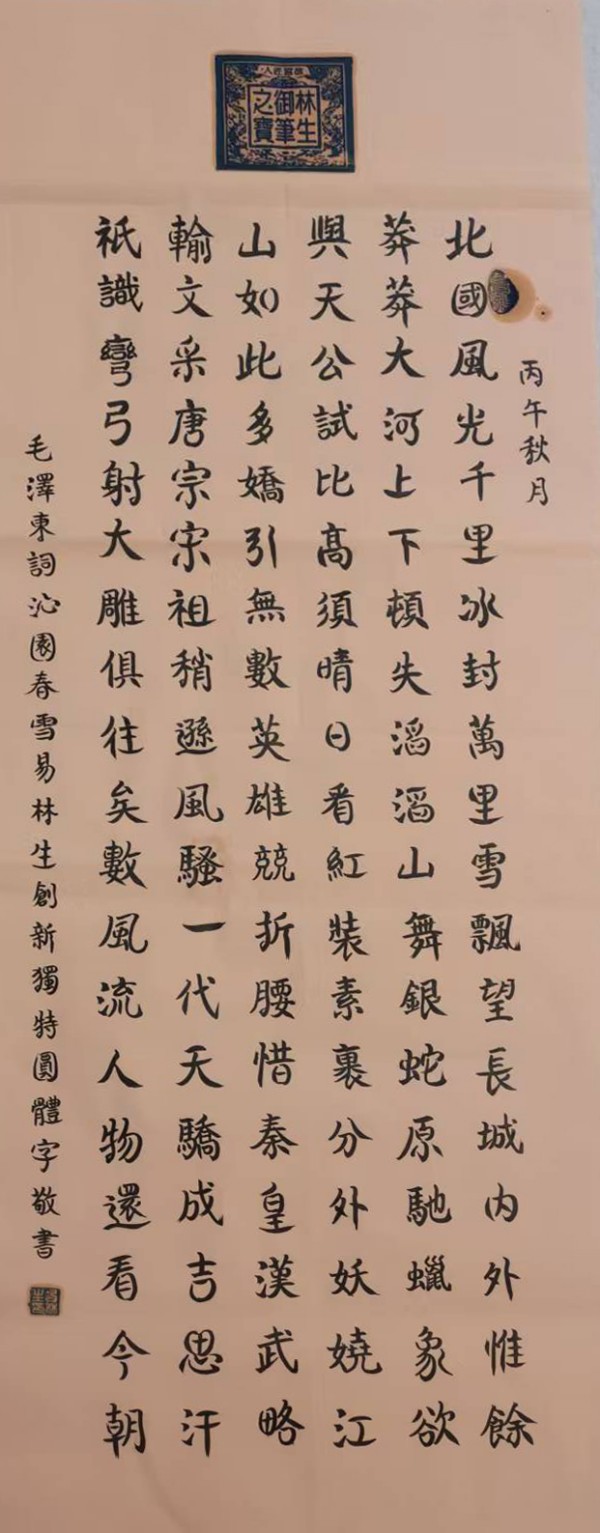 林生
御筆
之寶
丙午秋月
北國風光千里冰封萬里雪飄望長城内外惟餘
莽莽大河上下頓失滔滔山舞銀蛇原馳蠟象欲
與天公試比髙須晴日看紅裝素裹分外妖嬈江
山如此多嬌引無數英雄競折腰惜秦皇漢武略
輸文采唐宗宋祖稍遜風騷一代天驕成吉思汗
祇識彎弓射大雕俱往矣數風流人物還看今朝
毛澤東詞沁園春雪易林生創新獨特圓體字敬書